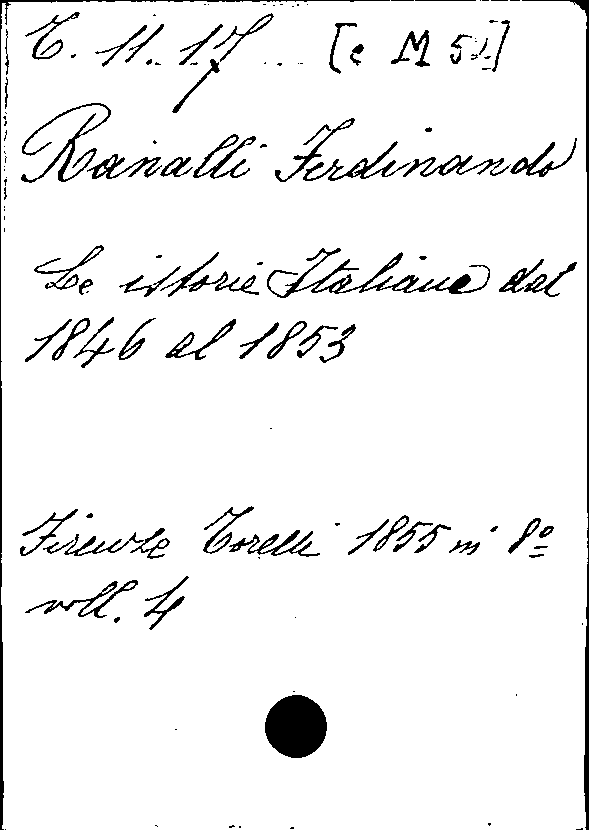 T. 11. 17 [e M 5
Ranalli Ferdinando
Le istorie Italiane dal
1846 al 1853
Firenze Torelli 1855 in 8º
voll. 4